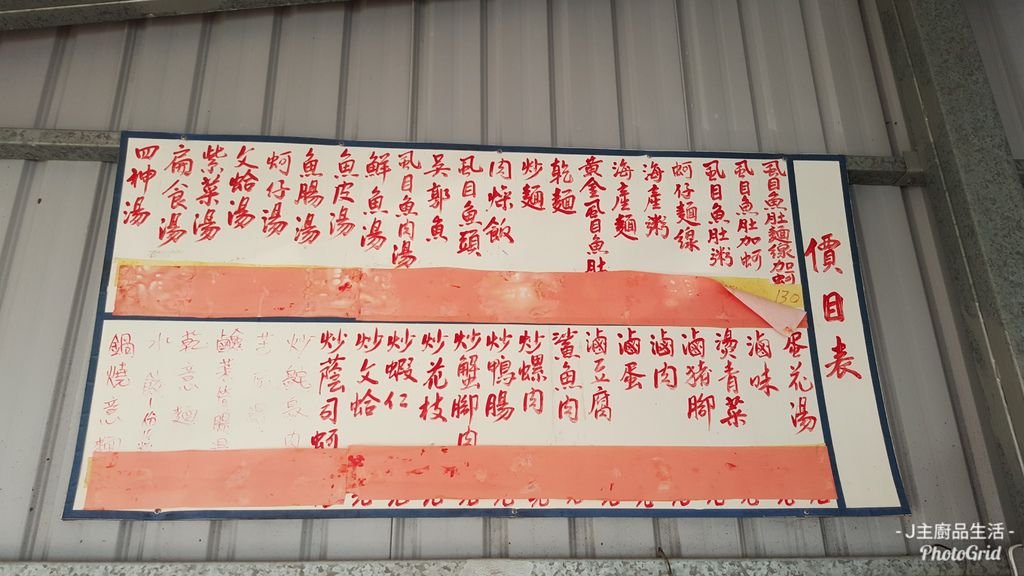 價目表
虱目魚肚麵線加蚵
虱目魚肚加蚵
虱目魚肚粥
蚵仔麵線
海產粥
海產麵
黃金虱目魚肚
乾麵
炒麵
肉燥飯
虱目魚頭
吳郭魚
虱目魚肉湯
鮮魚湯
魚皮湯
魚腸湯
蚵仔湯
文蛤湯
紫菜湯
扁食湯
四神湯
130
蛋花湯
滷味
燙青菜
滷豬腳
滷肉
滷蛋
滷豆腐
鯊魚肉
炒螺肉
炒鴨腸
炒蟹腳肉
炒花枝
炒蝦仁
炒文蛤
炒蔭司蚵
乾意麵
鍋燒意麵
- J主廚品生活 -
PhotoGrid